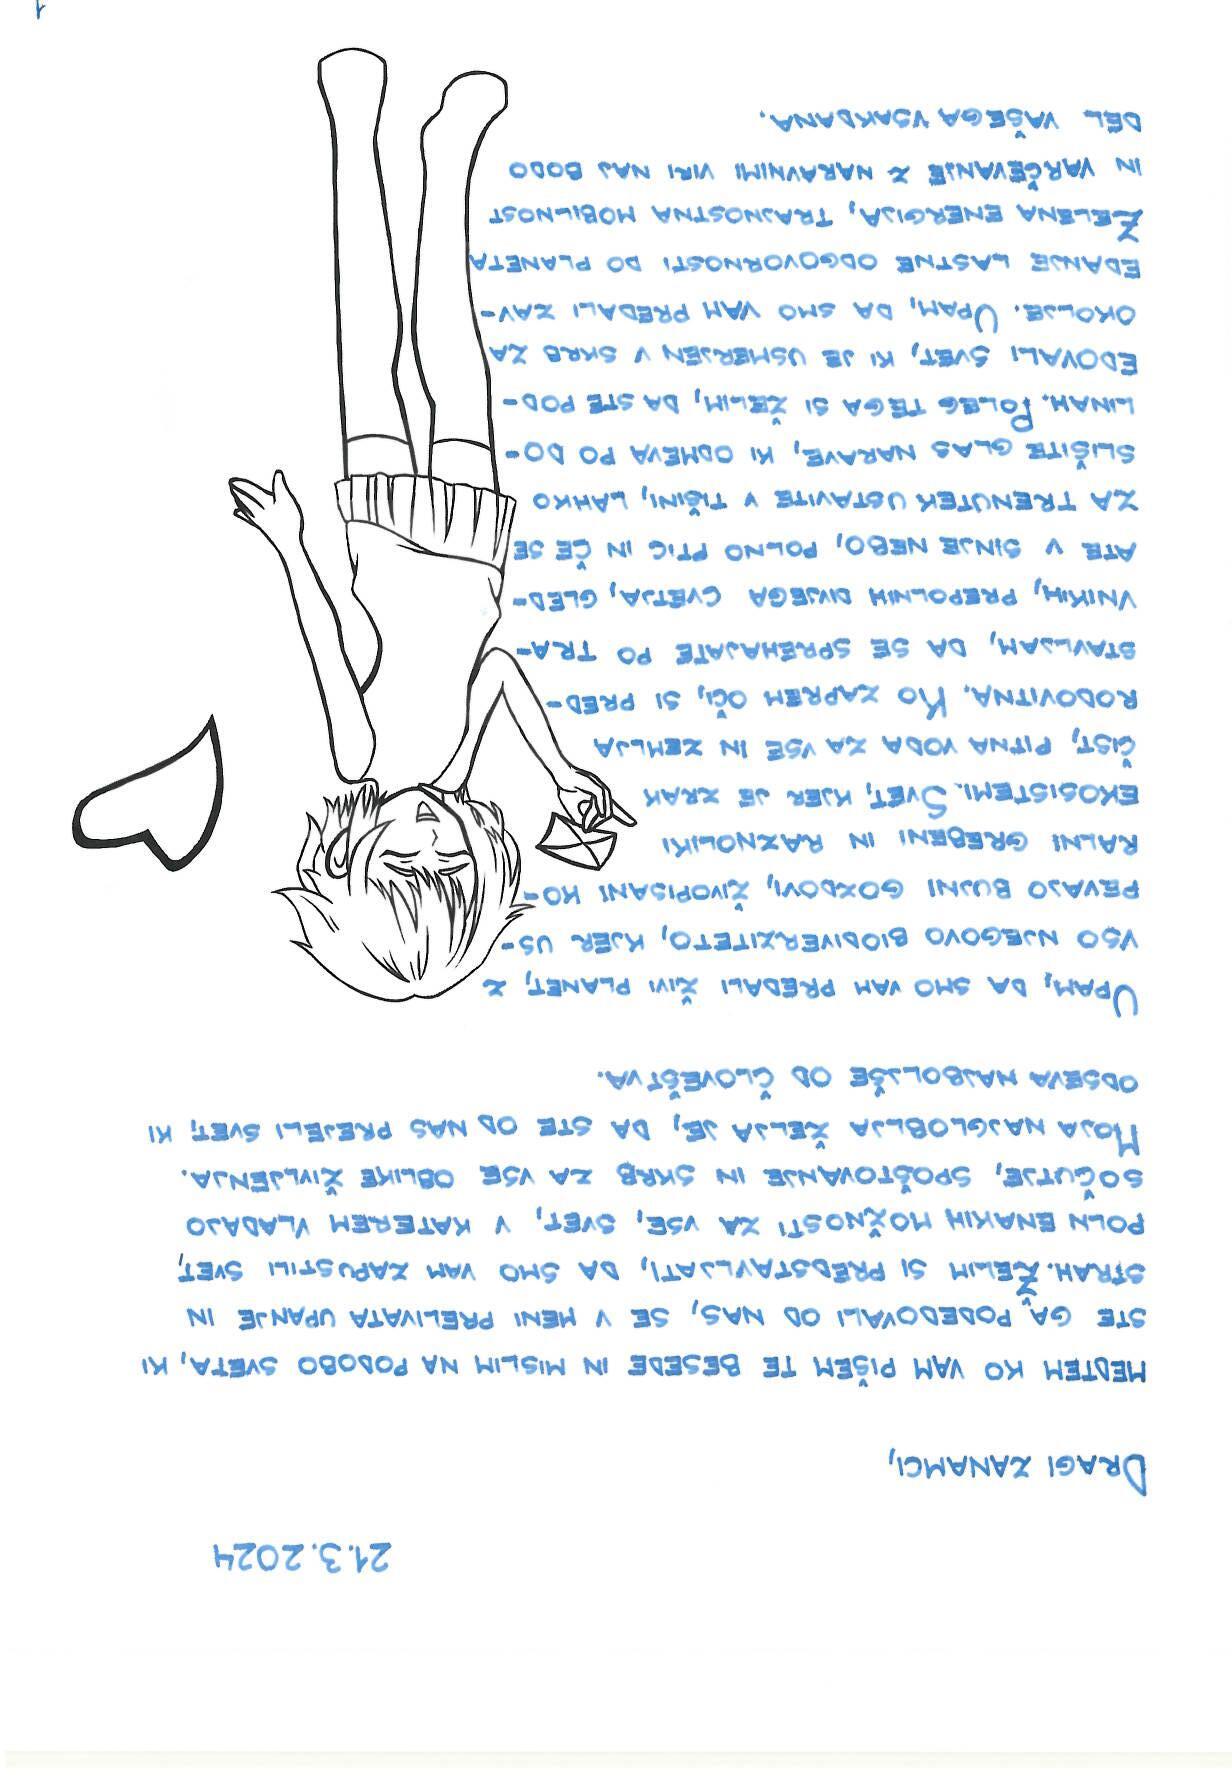 21.3.2024
DRAGI ZANAMCI,
MEDTEM KO VAM PIŠEM TE BESEDE IN MISLIM NA PODOBO SVETA, KI
STE GA PODEDOVALI OD NAS, SE V MENI PRELIVATA UPANJE IN
STRAH. ŽELIM SI PREDSTAVLJATI, DA SMO VAM ZAPUSTILI SVET,
POLN ENAKIH MOŽNOSTI ZA VSE, SVET, V KATEREM VLADAJO
SOČUTJE, SPOŠTOVANJE IN SKRB ZA VSE OBLIKE ŽIVLJENJA.
MOJA NAJGLOBLJA ŽELJA JE, DA STE OD NAS PREJELI SVET, KI
ODSEVA NAJBOLJŠE OD ČLOVEŠTVA.
UPAM, DA SMO VAM PREDALI ŽIVI PLANET, Z
VSO NJEGOVO BIODIVERZITETO, KJER US-
PEVAJO BUJNI GOZDOVI, ŽIVOPISANI KO-
RALNI GREBENI IN RAZNOLIKI
EKOSISTEMI. SVET, KJER JE ZRAK
ČIST, PITNA VODA ZA VSE IN ZEMLJA
RODOVITNA. KO ZAPREM OČI, SI PRED-
STAVLJAM, DA SE SPREHAJATE PO TRA-
VNIKIH, PREPOLNIH DIVJEGA CVETJA, GLED-
ATE V SINJE NEBO, POLNO PTIC IN ČE SE
ZA TRENUTEK USTAVITE V TIŠINI, LAHKO
SLIŠITE GLAS NARAVE, KI ODMEVA PO DO-
LINAH. POLEG TEGA SI ŽELIM, DA STE POD-
EDOVALI SVET, KI JE USMERJEN V SKRB ZA
OKOLJE. UPAM, DA SMO VAM PREDALI ZAV-
EDANJE LASTNE ODGOVORNOSTI DO PLANETA
ZELENA ENERGIJA, TRAJNOSTNA MOBILNOST
IN VARČEVANJE Z NARAVNIMI VIRI NAJ BODO
DEL VAŠEGA VSAKDANA.
1